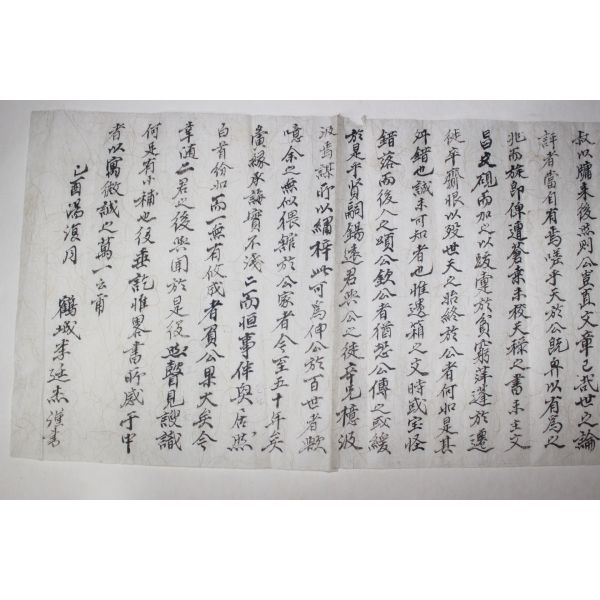 叔以牖来後照則公豈直文章已哉世之論
評者當自有焉嗟乎天於公既畀以有為之
兆而旋即俾邅蒼来未校天祿之書未主文
昌之硯而加之以跋疐於負窮萍蓬於遷
徙平齋恨以殁世天之始終於公者何如是其
舛錯也誠未可知者也惟遺箱之文時或宝怪
錯落而後人之頌公欽公者猶恐公傳之或緩
於是乎賢嗣錫遠君與公之徒辛兄檍波
波焉謀所以繡梓此可為伸公於百世者歟
噫余之無似猥雖於公家者今至五十年矣
薔緣承誨實不淺亡而恒事伴與居然
白首份如而一無有攸成者負公果大矣今
幸随二君之後與聞於是役瞽見謏識
何足有小補也役垂訖惟畧書所感于中
者以寓微誠之萬一云甯
己酉渴後月
鶴城李廷杰謹書